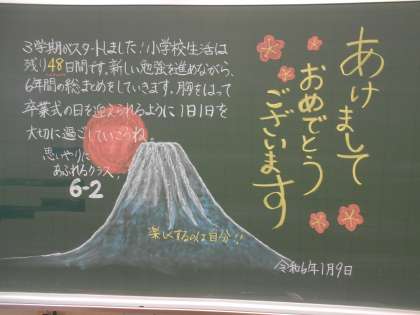 あけまして
おめでとう
ございます
3学期がスタートしました!小学校生活は
残り48日間です。新しい勉強を進めながら、
6年間の総まとめをしていきます。胸をはって
卒業式の日を迎えられるように1日1日を
大切に過ごしていこうね。
思いやりに
あふれるクラス!
6-2
楽しくするのは自分!!
令和6年1月9日